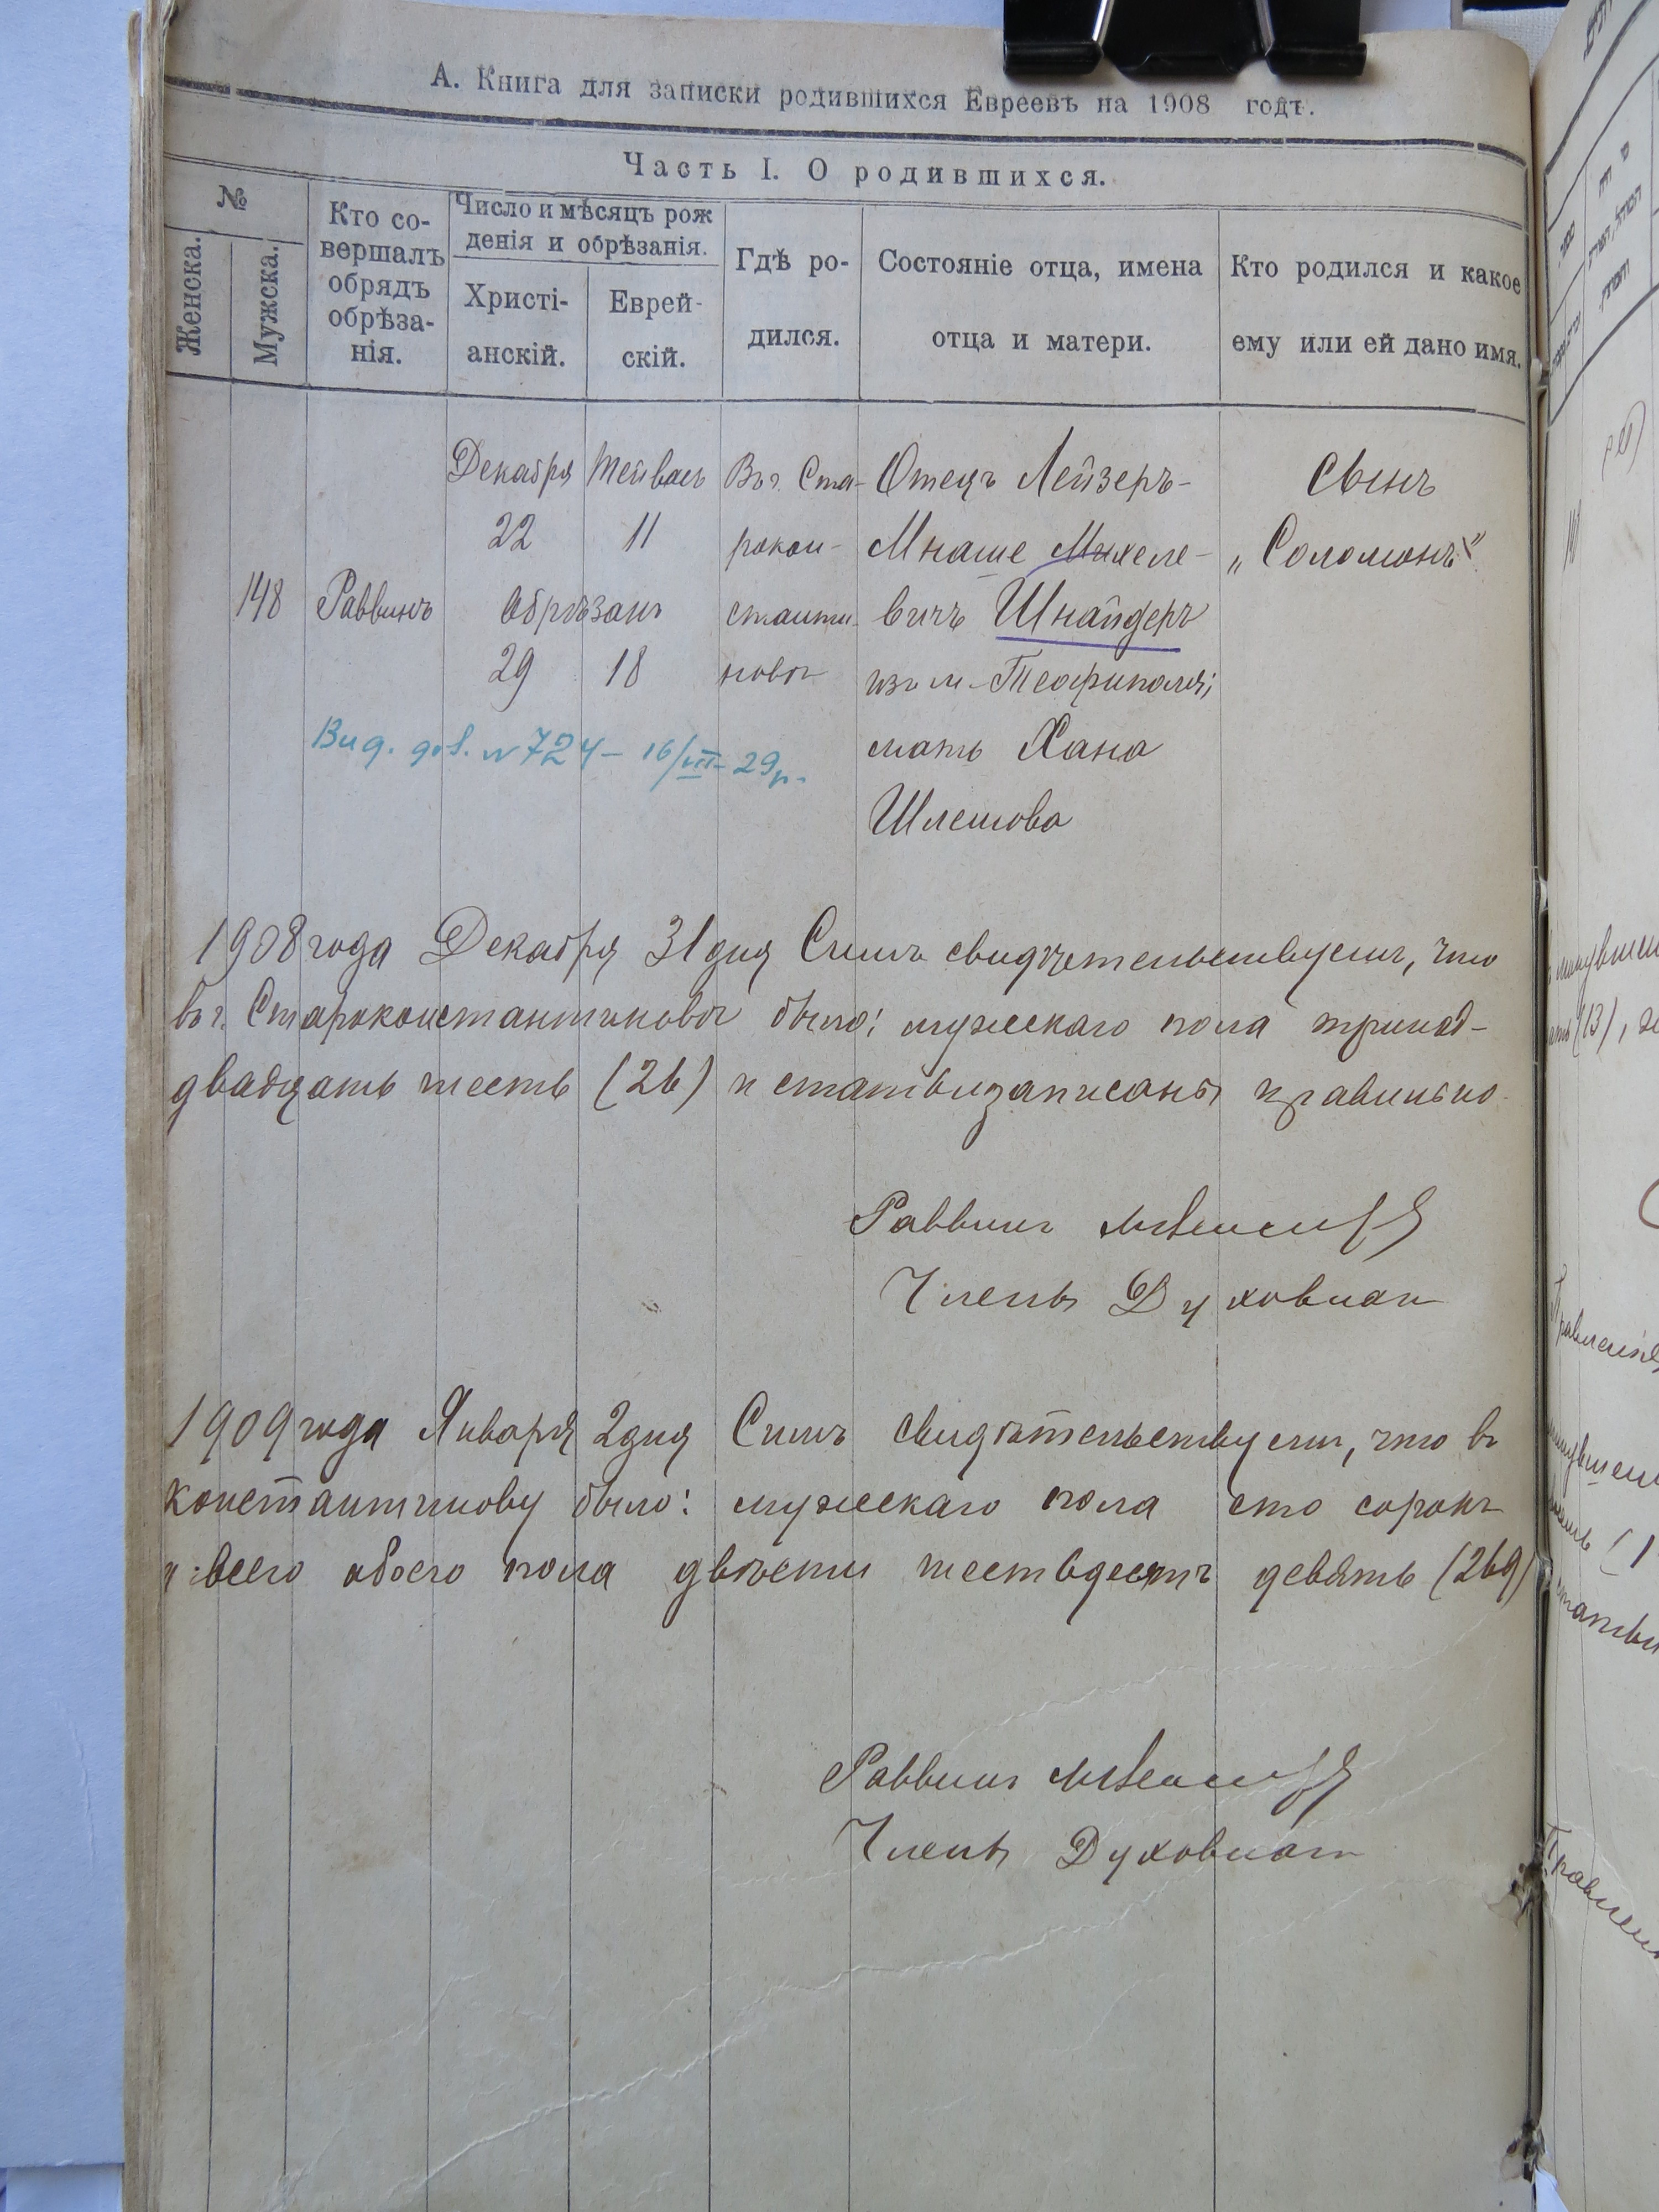 А. Книга для записки родившихся Евреевъ на 1908 годъ.
Часть I. О родившихся.
№
Женска.
Мужска.
Кто со-
вершалъ
обрядъ
обрѣза-
нія.
Число и мѣсяцъ рож
денія и обрѣзанія.
Христі-
анскій.
Еврей-
скій.
Гдѣ ро-
дился.
Состояніе отца, имена
отца и матери.
Кто родился и какое
ему или ей дано имя.
148
Раввинъ
Декабря
22
Тейвась
11
Обрѣзанъ
29
18
Въ г. Ста-
рокон-
станти-
новѣ
Отецъ Лейзеръ-
Мнаше Михеле-
вичъ Шнайдеръ
изъ м. Теофиполя;
мать Хана
Шлемова
Сынъ
„Соломонъ"
Вид. дов. N 724 – 16/III 29р.
1908 года Декабря 31 дня Симъ свидѣтельствуемъ, что
въ г. Староконстантиновѣ было: мужескаго пола тринад-
двадцать шесть (26) и статьи записаны правильно.
Раввинъ
Члены Духовнаг
1909 года Января 2 дня Симъ свидѣтельствуемъ, что въ
константинову было: мужескаго пола сто сорокъ
и всего обоего пола двѣсти шестьдесятъ девять (269)
Раввинъ
Члены Духовнаг